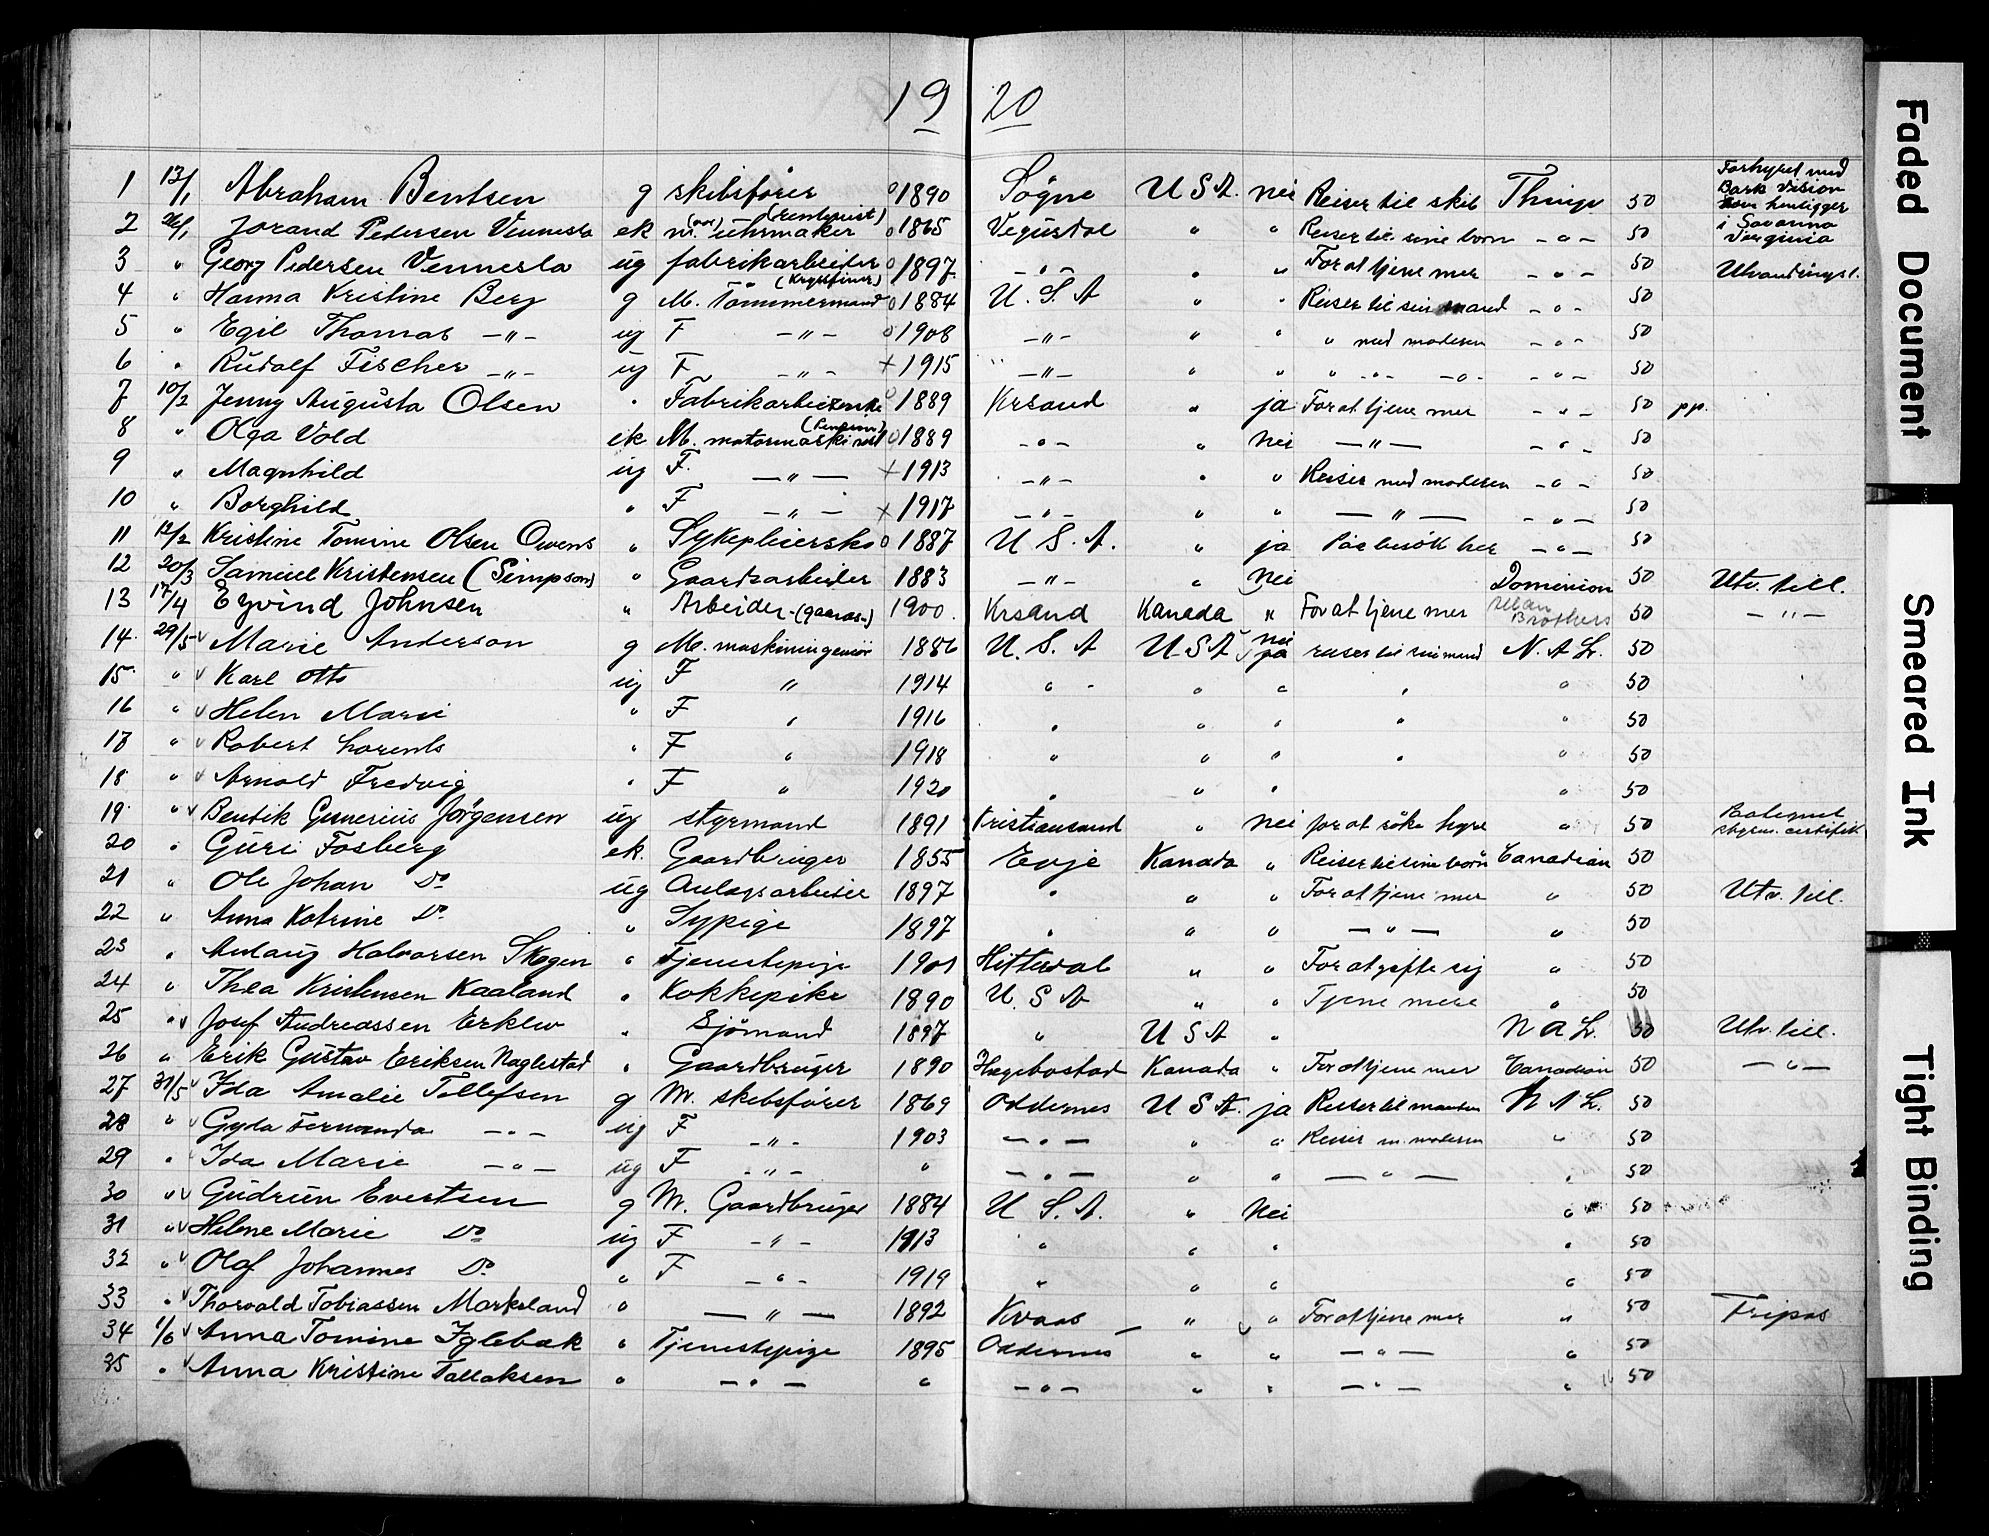 19 20
1 13/1 Abraham Bentsen g skibsfører o 1890 Sögne U S A. nei Reiser til skib Thingv 50 Forhyret med Bark Vision som henligger i Savanna Virginia
2 26/1 Jorand Pedersen Vennesla ek m. uhrmaker o 1865 Vegusdal " " Reiser til sine born - " - 50
3 " Georg Pedersen Vennesla ug fabrikarbeider o 1897 - " - " " For at tjene mer - " - 50 Utvandringst.
4 " Hanna Kristine Berg g M. Tömmermand o 1884 U. S. A " " Reiser til sin mand - " - 50
5 " Egil Thomas - " - ug F - " - o 1908 - " - " " " med moderen - " - 50
6 " Rudolf Fischer - " - ug F - " - + 1915 - " - " " " - " - - " - 50
7 10/2 Jenny Augusta Olsen " Fabrikarbeiderske o 1889 Krsand " ja For at tjene mer - " - 50 pp.
8 " Olga Vold ek M. motormaskinist o 1889 - " - " nei - " - - " - 50
9 " Magnhild ug F. - " - + 1913 - " - " " Reiser med moderen - " - 50
10 " Borghild " F - " - + 1917 - " - " " - " - - " - 50
11 12/2 Kristine Tomine Olsen Owens " Sykepleierske o 1887 U S. A. " ja Paa besök her - " - 50
12 20/3 Samuel Kristensen (Simpson) " Gaardsarbeider 1883 - " - " Nei Dominion 50 Utv. till.
13 17/4 Eyvind Johnsen " Arbeider (gaards-) 1900. Krsand Kanada " For at tjene mer Allan Brothers 50 - " -
14. 29/5 v Marie Anderson g M. maskiningeniör 1886 U. S. A U S A nei ja reiser til sin mand N. A L. 50
15. " v Karl Otto ug F " 1914 " - " " " " 50
16 " v Helen Marie " F " 1916 " " " " " 50
17 " v Robert Lorents " F " 1918 " " " " " 50
18 " v Arnold Fredvig " F " 1920 " " " " 50
19 " v Bentik Gunerius Jörgensen ug styrmand 1891 Kristiansand " nei for at söke hyre " 50 styrm. certifik
20 " Guri Fosberg ek. Gaardbruger 1855 Evje Kanada " Reiser til sine börn Canadian 50
21 " Ole Johan Do ug Anlægsarbeider 1897 " " " For at tjene mer " 50 Utv. till.
22 " Anna Katrine Do " Sypige 1897 " " " - " - " 50
23 " Aslaug Halvorsen Skogen " Tjenestepige 1901 Hitterdal " " For at gifte sig " 50
24 " Thea Kristensen Kaaland " Kokkepike 1890 U. S A " " Tjene mere " 50
25 " v Josef Andreassen Erklev " Sjömand 1897 " U S A " N A L. 50 Utv. till.
26 " Erik Gustav Eriksen Naglestad " Gaardbruger 1890 Hægebostad Kanada " For at tjene mer Canadian 50 - " -
27 31/5 v Ida Amalie Tellefsen g M. skibsfører 1869 Oddernes U S A. ja Reiser til manden N A L. 50
28 " v Gyda Fernanda - " - ug F - " - 1903 - " - " " Reiser m. moderen " 50
29 " v Ida Marie - " - ug F - " - " - " - " " - " - " 50
30 " v Gudrun Evertsen g M. Gaardbruger 1884 U S. A. " Nei " 50
31 " v Helene Marie Do ug F - " - 1913 " " " " 50
32 " v Olaf Johannes Do " F - " - 1919 " " " " 50
33 " v Thorvald Tobiassen Markeland " - " - 1892 Kvaas " " For at tjene mer " 50 Fripas
34 1/6 v Anna Tomine Iglebæk " Tjenestepige 1895 Oddernes " " - " - " 50
35 " v Anna Kristine Tallaksen " - " - " - " - " " - " - " 50
Faded Document
Smeared Ink
Tight Binding